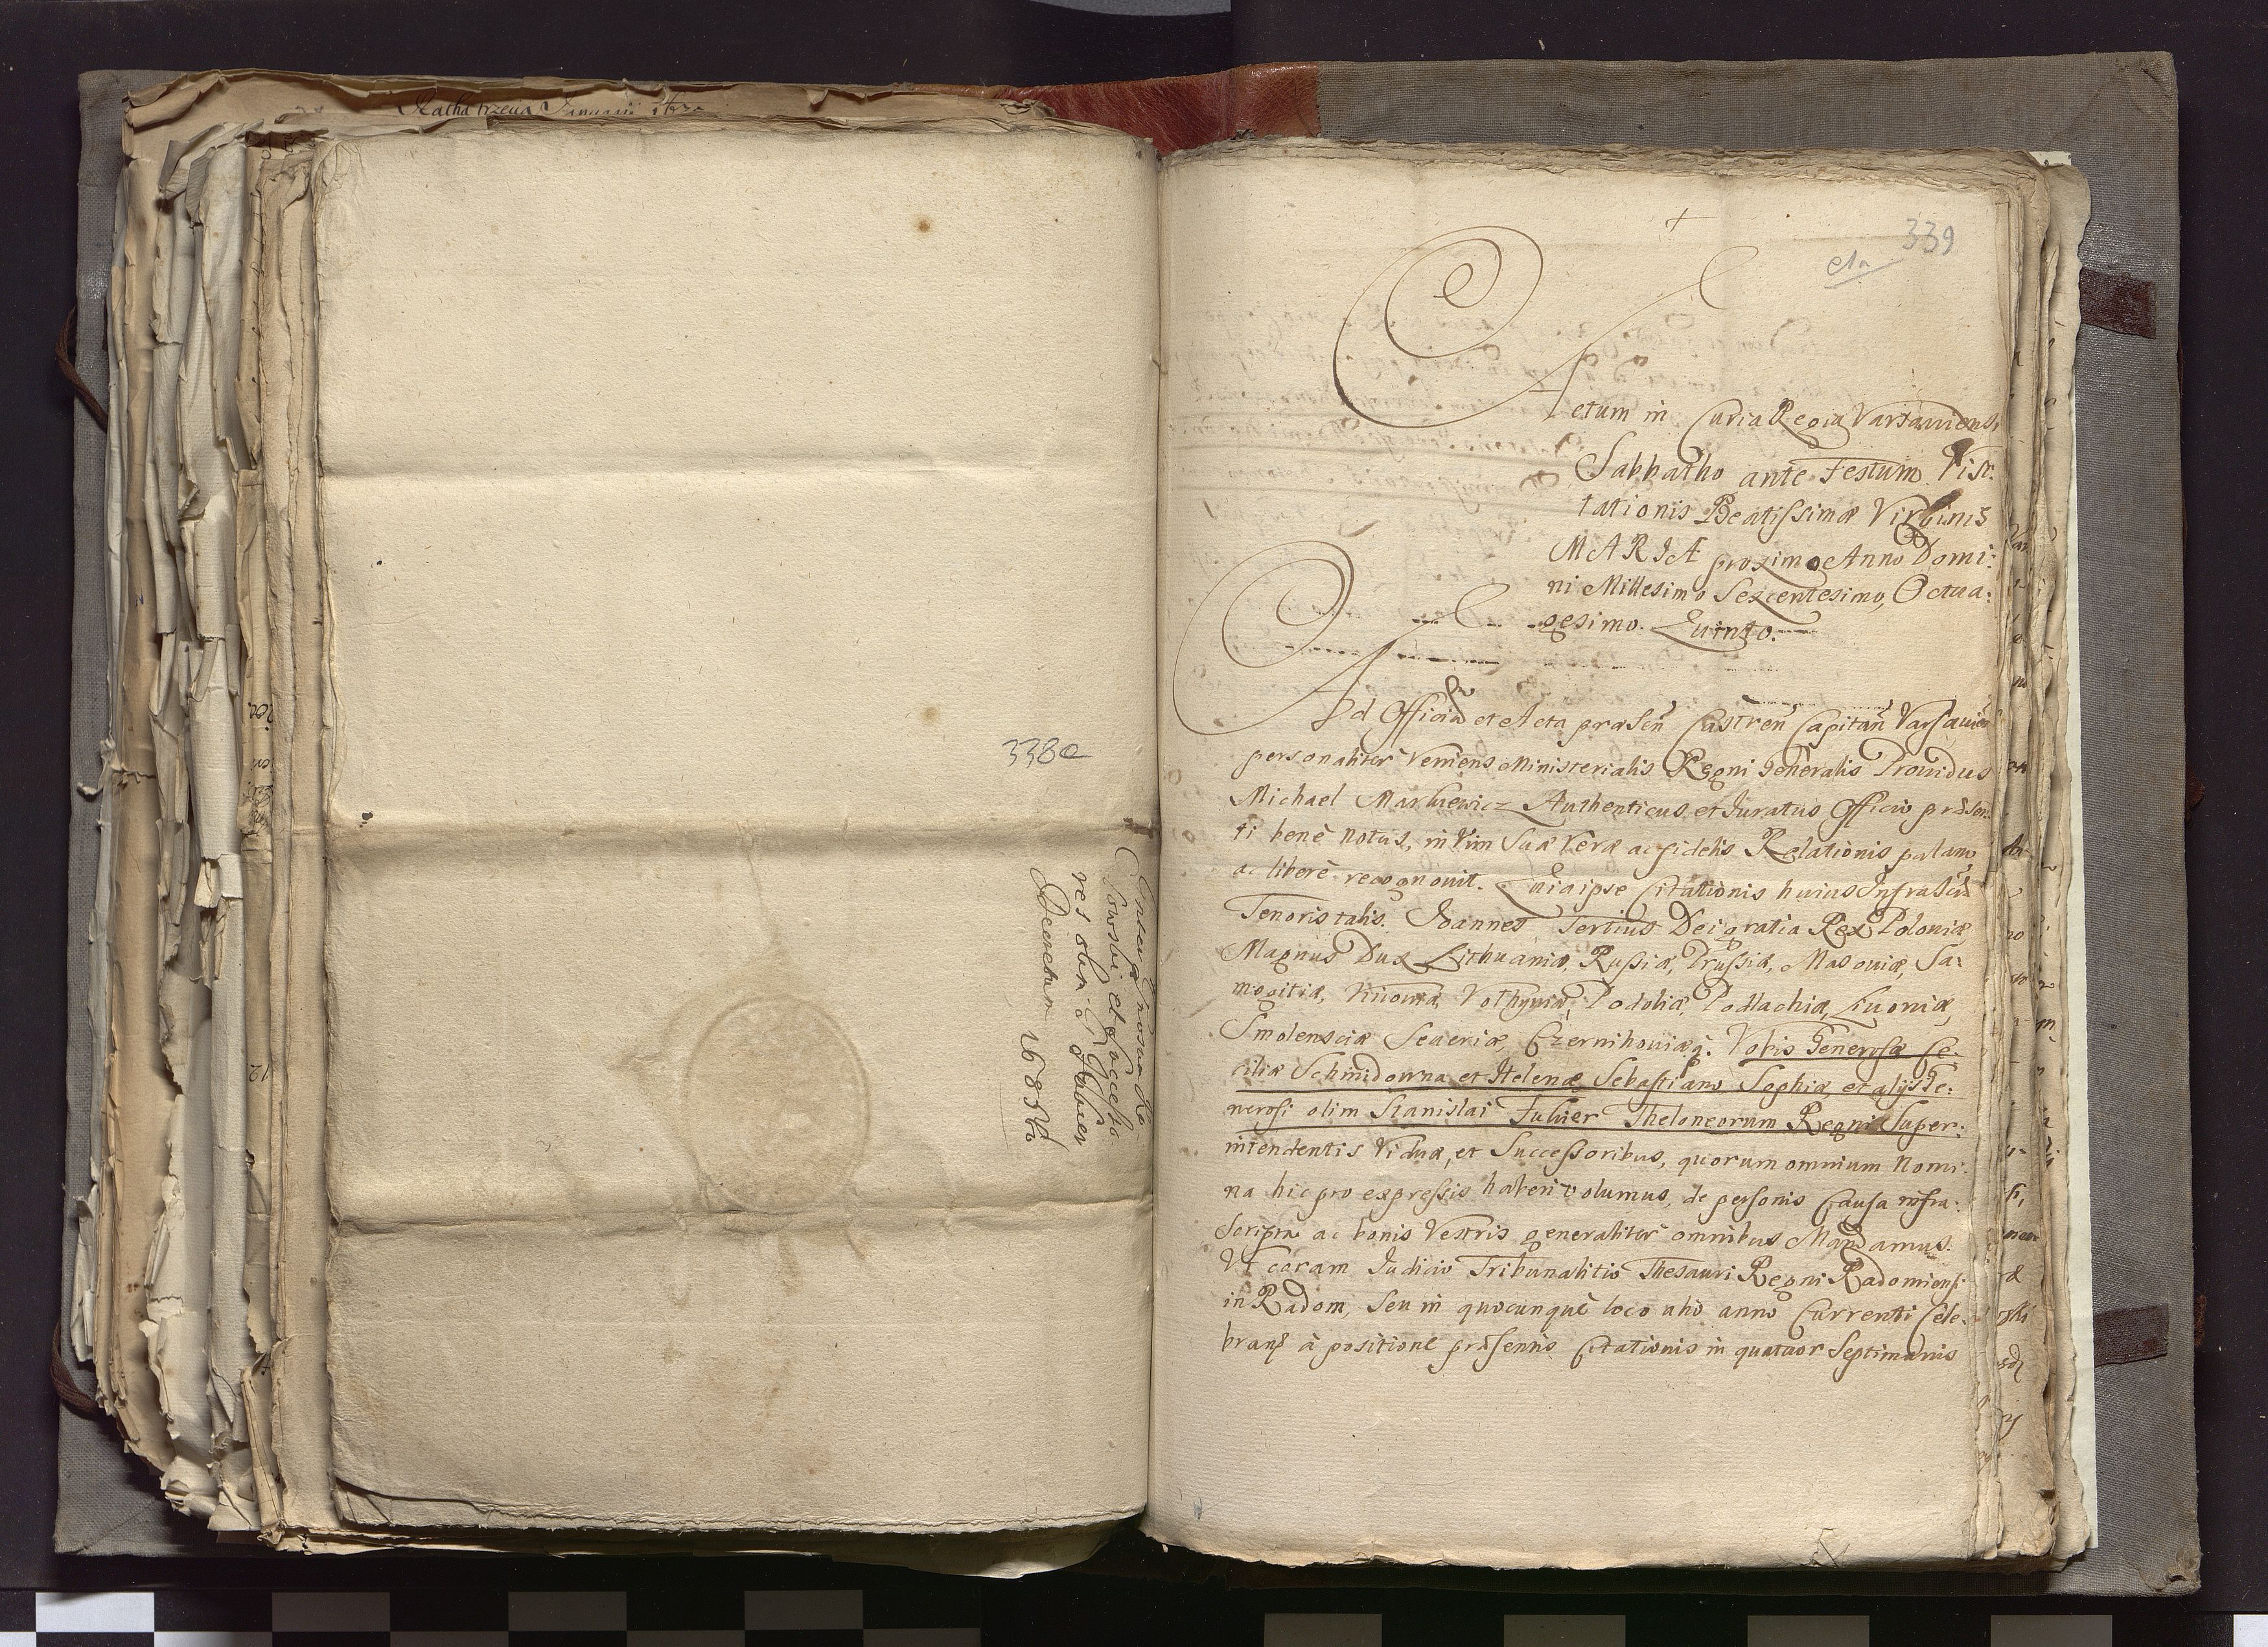 Januarii
338a
Inter Gnosum Ko
sowski et Successo
res olim G. Fabuer
Decretum 1685to
+
339
Actum in Curia Regia Varsaviensi
Sabbatho ante Festum Visi:
tationis Beatissimæ Virginis
MARIÆ proximo Anno Domi:
ni Millesimo Sexcentesimo, Octua:
gesimo. Quinto.
Ad Officiũ et Acta præsen̄ Castren̄ Capitan̄ Varsavien̄
personaliter veniens Ministerialis Regni Generalis Providus
Michael Markiewicz Authenticus et Juratus Officio præsen:
ti benè notus, in vim suæ veræ ac fidelis Relationis palam
ac liberè recognovit. Quia ipse Citationis huius Infrascr̄
Tenoris talis. Joannes Tertius Dei gratia Rex Poloniæ
Magnus Dux Lithuaniæ, Russiæ, Prussiæ, Masoviæ, Sa:
mogitiæ, Kiioviæ, Volhyniæ, Podoliæ, Podlachiæ, Livoniæ,
Smolensciæ Severiæ, Czernihoviæq̨. Vobis Generosæ Ce:
ciliæ Schmidowna et Helenæ Sebastiano Sophiæ, et alijs Ge:
nerosi olim Stanislai Fuhier Theloneorum Regni Super:
intendentis Viduæ, et Successoribus, quorum omnium Nomi:
na hic pro expressis haberi volumus, de personis Causa infra:
scripta ac bonis Vestris generaliter omnibus Mandamus.
Vt coram Judicio Tribunalitio Thesauri Regni Radomiensi
in Radom, seu in quocunquè loco alio anno Currenti Cele:
bran̄ à positione præsentis Citationis in quatuor Septimanis